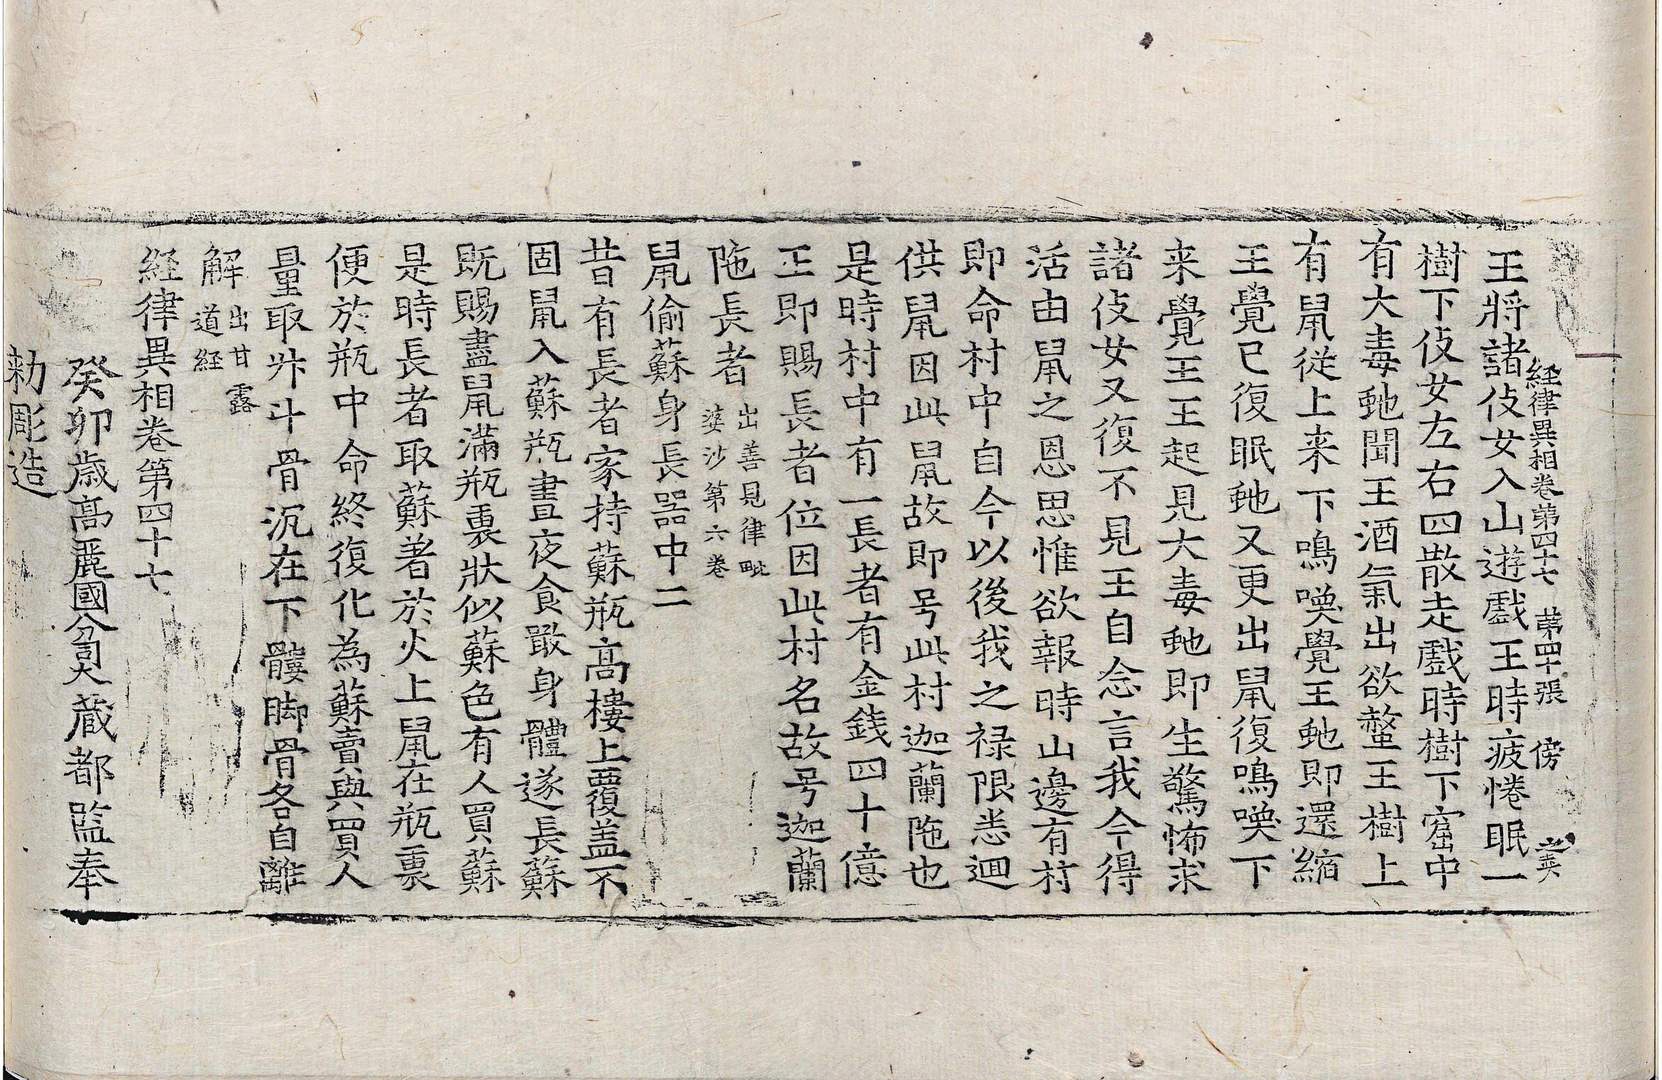 経律異相卷第四十七 第四十張 傍
王將諸伎女入山遊戲王時疲惓眠一
樹下伎女左右四散走戲時樹下窟中
有大毒虵聞王酒氣出欲螫王樹上
有鼠從上来下鳴喚覺王虵即還縮
王覺已復眠虵又更出鼠復鳴喚下
来覺王王起見大毒虵即生驚怖求
諸伎女又復不見王自念言我今得
活由鼠之恩思惟欲報時山邊有村
即命村中自今以後我之禄限悉迴
供鼠因此鼠故即号此村迦蘭陁也
是時村中有一長者有金錢四十億
王即賜長者位因此村名故号迦蘭
陁長者 出善見律毗婆沙第六卷
鼠偷蘇身長器中二
昔有長者家持蘇瓶高樓上覆盖不
固鼠入蘇瓶晝夜食噉身體遂長蘇
既賜盡鼠滿瓶裏狀似蘇色有人買蘇
是時長者取蘇著於火上鼠在瓶裏
便於瓶中命終復化為蘇賣與買人
量取升斗骨沉在下髏脚骨各自離
解 出甘露道経
経律異相卷第四十七
癸卯歳高麗國分司大蔵都監奉
勅彫造